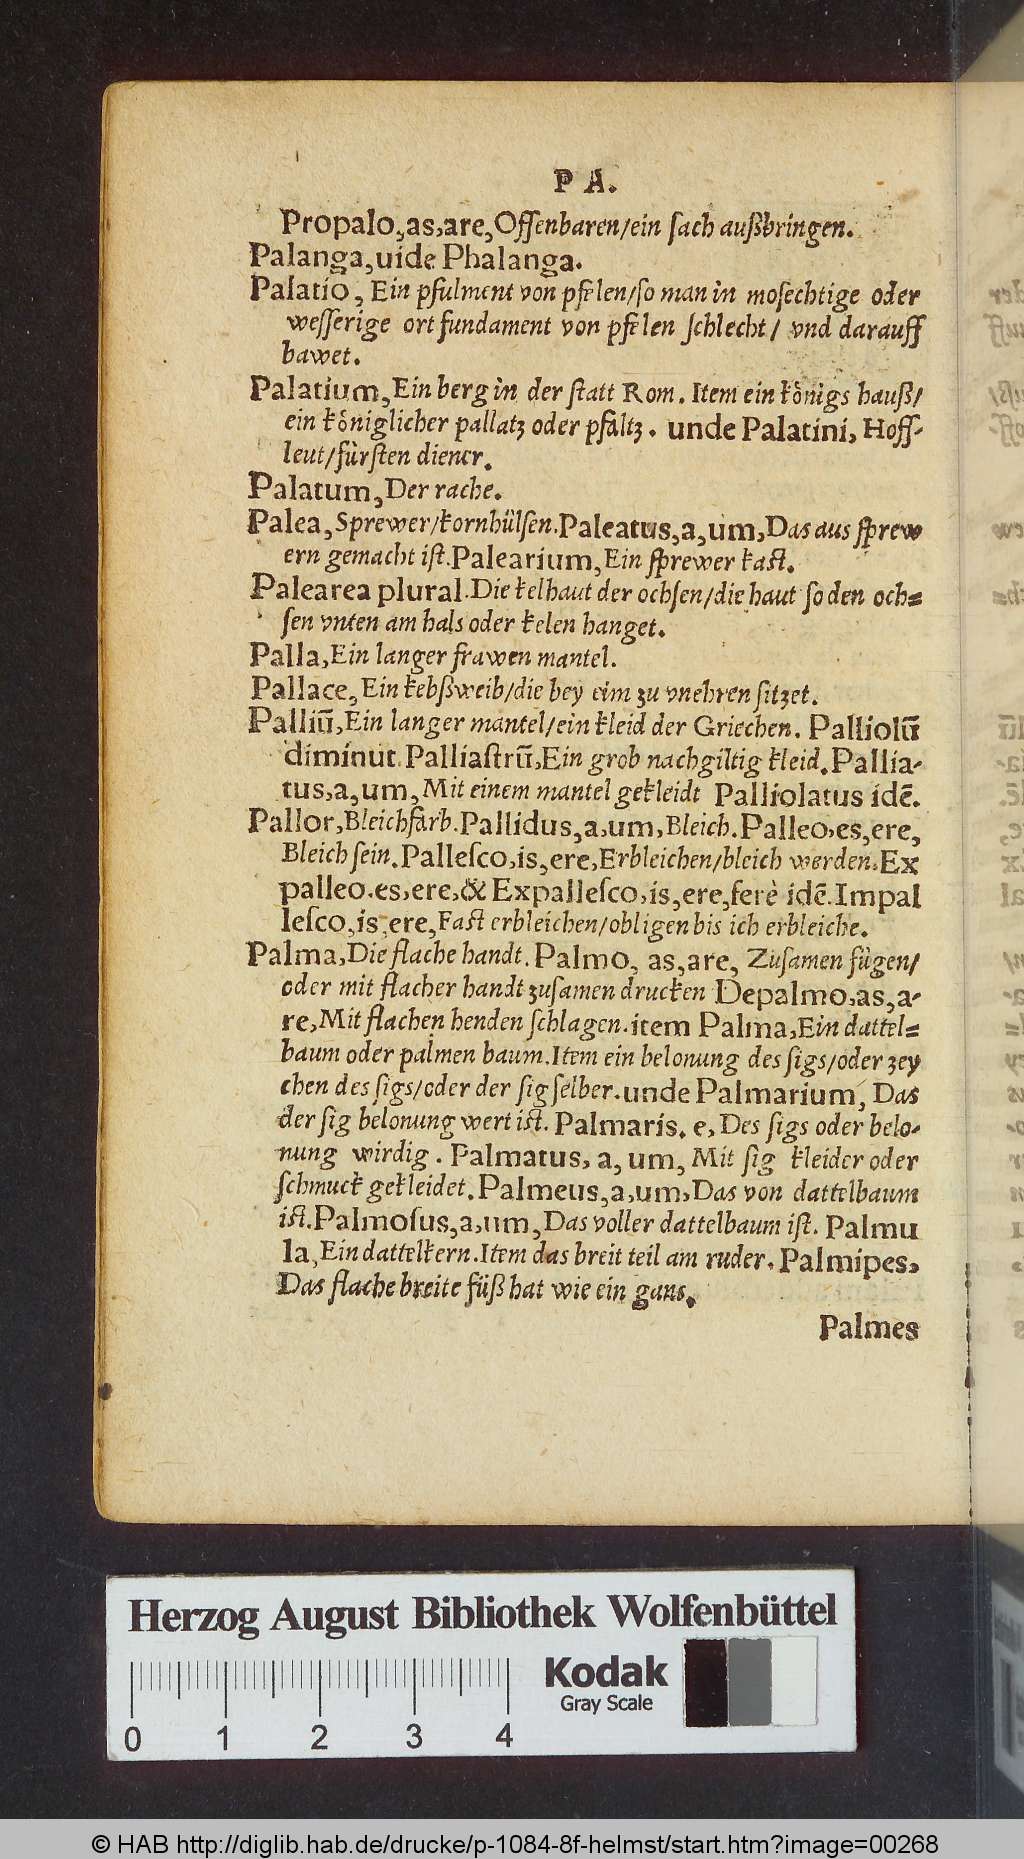 P A.
Propalo,as,are,Offenbaren/ein ſach außbringen.
Palanga,uide Phalanga.
Palatio, Ein pfulment von pfelen/ſo man in moſechtige oder
weſſerige ort fundament von pfelen ſchlecht/ vnd darauff
bawet.
Palatium, Ein berg in der ſtatt Rom. Item ein koͤnigs hauß/
ein koͤniglicher pallatz oder pfaltz. unde Palatini, Hoff-
leut/fürſten diener.
Palatum, Der rache.
Palea, Sprewer/kornhülſen. Paleatus,a,um,Das aus ſprew
ern gemacht iſt. Palearium, Ein ſprewer kaſt.
Palearea plural. Die kelhaut der ochſen/die haut ſo den och=
ſen vnten am hals oder kelen hanget.
Palla, Ein langer frawen mantel.
Pallace, Ein kebßweib/die bey eim zu vnehren ſitzet.
Palliū, Ein langer mantel/ein kleid der Griechen. Palliolū
diminut. Palliaſtrū, Ein grob nachgiltig kleid. Pallia-
tus,a,um, Mit einem mantel gekleidt Palliolatus idē.
Pallor, Bleichfarb. Pallidus,a,um, Bleich. Palleo,es,ere,
Bleich ſein. Palleſco,is,ere, Erbleichen/bleich werden. Ex
palleo.es,ere,& Expalleſco,is,ere,ferè idē. Impal
leſco,is,ere, Faſt erbleichen/obligen bis ich erbleiche.
Palma, Die flache handt. Palmo, as,are, Zuſamen fügen/
oder mit flacher handt zuſamen drucken Depalmo,as,a-
re, Mit flachen henden ſchlagen. item Palma, Ein dattel=
baum oder palmen baum. Item ein belonung des ſigs/oder zey
chen des ſigs/oder der ſig ſelber. unde Palmarium, Das
der ſig belonung wert iſt. Palmaris. e, Des ſigs oder belo-
nung wirdig. Palmatus, a, um, Mit ſig kleider oder
ſchmuck gekleidet. Palmeus,a,um, Das von dattelbaum
iſt. Palmoſus,a,um, Das voller dattelbaum iſt. Palmu
la, Ein dattelkern. Item das breit teil am ruder. Palmipes,
Das flache breite füß hat wie ein gans.
Palmes
Herzog August Bibliothek Wolfenbüttel
Kodak
Gray Scale
0 1 2 3 4
© HAB http://diglib.hab.de/drucke/p-1084-8f-helmst/start.htm?image=00268